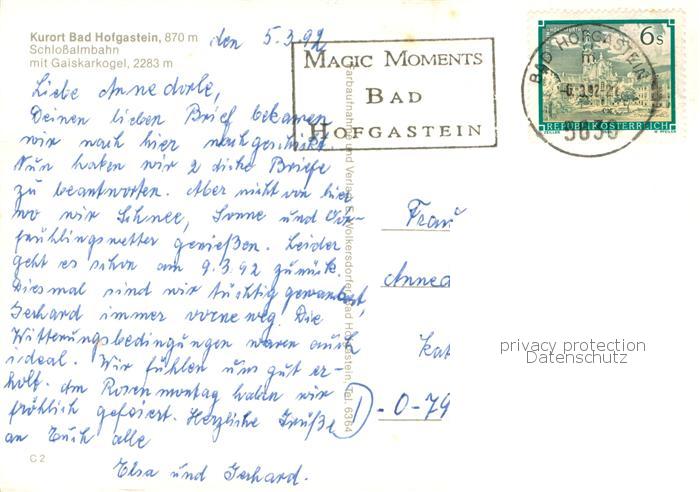 Kurort Bad Hofgastein, 870 m
Schloßalmbahn
mit Gaiskarkogel, 2283 m
den 5.3.92
Liebe Annedorle,
Deinen lieben Brief bekamen
wir nach hier nachgeschickt.
Nun haben wir 2 dicke Briefe
zu beantworten. Aber nicht von hier
wo wir Schnee, Sonne und Vor-
frühlingswetter genießen. Leider
geht es schon am 9.3.92 zurück.
Diesmal sind wir tüchtig gewandert,
Gerhard immer vorneweg. Die
Witterungsbedingungen waren auch
ideal. Wir fühlen uns gut er-
holt. Am Rosenmontag haben wir
fröhlich gefeiert. Herzliche Grüße
an Euch alle
Elsa und Gerhard.
C 2
MAGIC MOMENTS
BAD
HOFGASTEIN
BAD HOFGASTEIN
5630
6 S
REPUBLIK ÖSTERREICH
Farbaufnahme und Verlag E. Volkersdorfer, Bad Hofgastein, Tel. 6364
Frau
Anned
Kat
D-O-79
privacy protection
Datenschutz